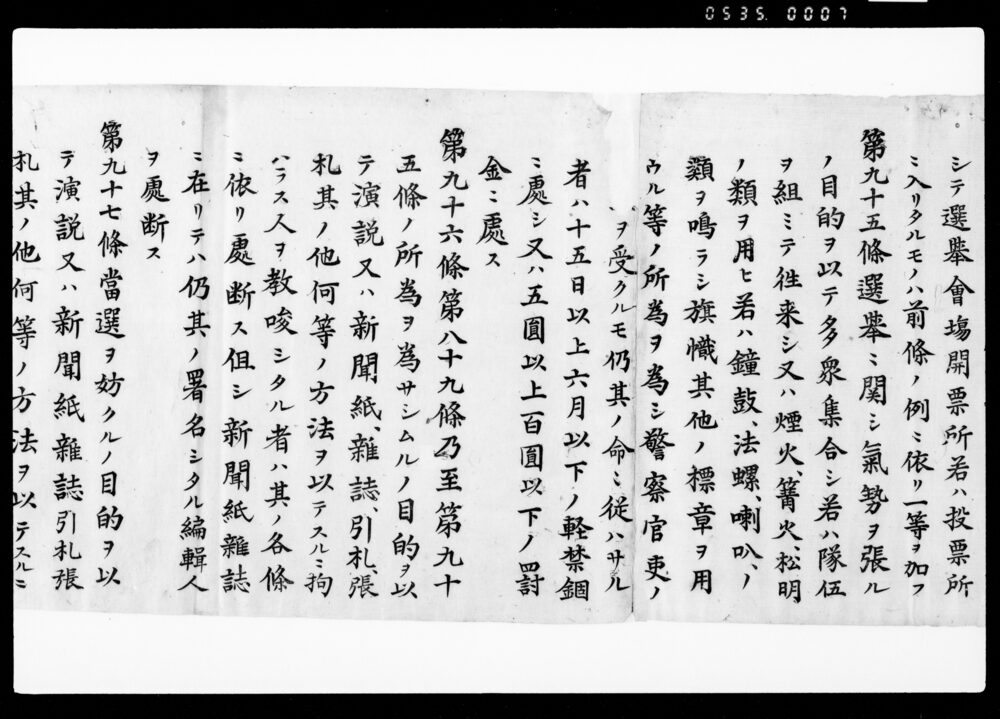 0535. 0007
シテ選擧會塲開票所若ハ投票所
ニ入リタルモノハ前條ノ例ニ依リ一等ヲ加フ
第九十五條選擧ニ関シ氣勢ヲ張ル
ノ目的ヲ以テ多衆集合シ若ハ隊伍
ヲ組ミテ徃来シ又ハ煙火、篝火、松明
ノ類ヲ用ヒ若ハ鐘鼓、法螺、喇叭、ノ
類ヲ鳴ラシ旗幟其他ノ標章ヲ用
ウル等ノ所為ヲ為シ警察官吏ノ
ヲ受クルモ仍其ノ命ニ従ハサル
者ハ十五日以上六月以下ノ軽禁錮
ニ處シ又ハ五圓以上百圓以下ノ罰
金ニ處ス
第九十六條第八十九條乃至第九十
五條ノ所為ヲ為サシムルノ目的ヲ以
テ演説又ハ新聞紙、雜誌、引札、張
札其ノ他何等ノ方法ヲ以テスルニ拘
ハラス人ヲ教唆シタル者ハ其ノ各條
ニ依リ處断ス但シ新聞紙雜誌
ニ在リテハ仍其ノ署名シタル編輯人
ヲ處断ス
第九十七條當選ヲ妨クルノ目的ヲ以
テ演説又ハ新聞紙雜誌引札張
札其ノ他何等ノ方法ヲ以テスルニ